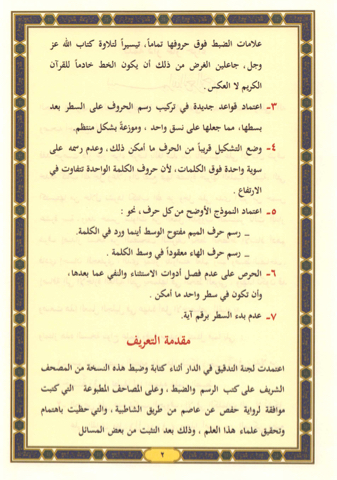 علامات الضبط فوق حروفها تماماً، تيسيراً لتلاوة كتاب الله عز
وجل، جاعلين الغرض من ذلك أن يكون الخط خادماً للقرآن
الكريم لا العكس.
٣- اعتماد قواعد جديدة في تركيب رسم الحروف على السطر بعد
بسطها، مما جعلها على نسق واحد ، وموزعةً بشكل منتظم.
٤- وضع التشكيل قريباً من الحرف ما أمكن ذلك، وعدم رسمه على
سوية واحدة فوق الكلمات، لأن حروف الكلمة الواحدة تتفاوت في
الارتفاع .
٥- اعتماد النموذج الأوضح من كل حرف، نحو :
_ رسم حرف الميم مفتوح الوسط أينما ورد في الكلمة.
_ رسم حرف الهاء معقوداً في وسط الكلمة .
٦- الحرص على عدم فصل أدوات الاستثناء والنفي عما بعدها،
وأن تكون في سطر واحد ما أمكن .
٧- عدم بدء السطر برقم آية.
مقدمة التعريف
اعتمدت لجنة التدقيق في الدار أثناء كتابة وضبط هذه النسخة من المصحف
الشريف على كتب الرسم والضبط ، وعلى المصاحف المطبوعة التي كتبت
موافقة لرواية حفص عن عاصم من طريق الشاطبية ، والتي حظيت باهتمام
وتحقيق علماء هذا العلم ، وذلك بعد التثبت من بعض المسائل
٢